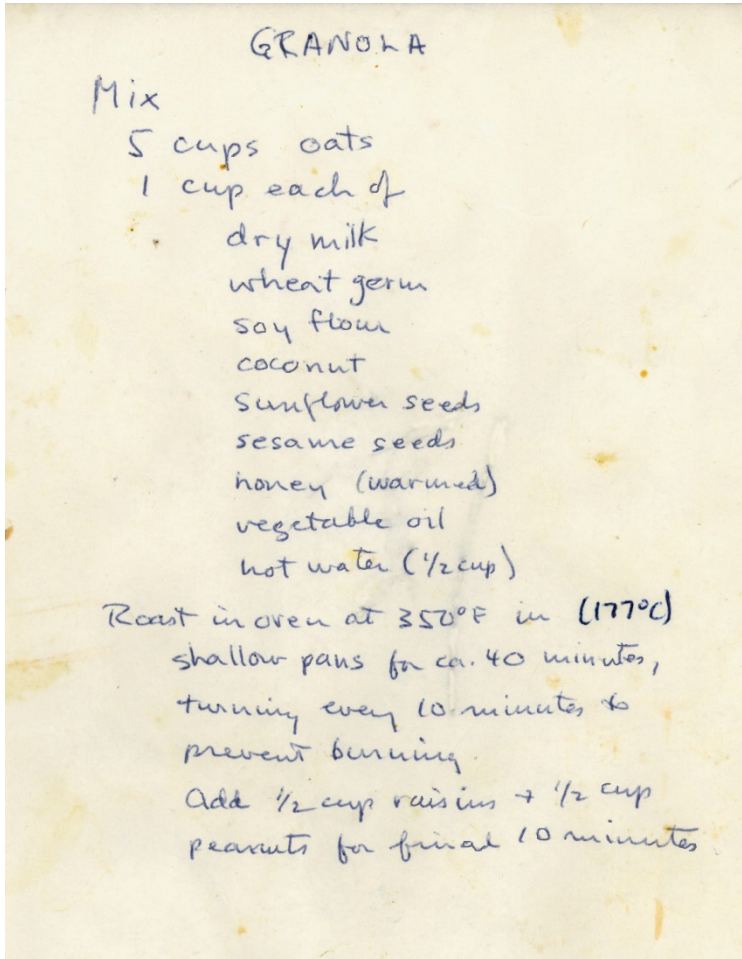 GRANOLA
Mix
5 cups oats
1 cup each of
dry milk
wheat germ
soy flour
coconut
sunflower seeds
sesame seeds
honey (warmed)
vegetable oil
hot water (1/2 cup)
Roast in oven at 350°F in (177°C)
shallow pans for ca. 40 minutes,
turning every 10 minutes to
prevent burning.
Add 1/2 cup raisins + 1/2 cup
peanuts for final 10 minutes